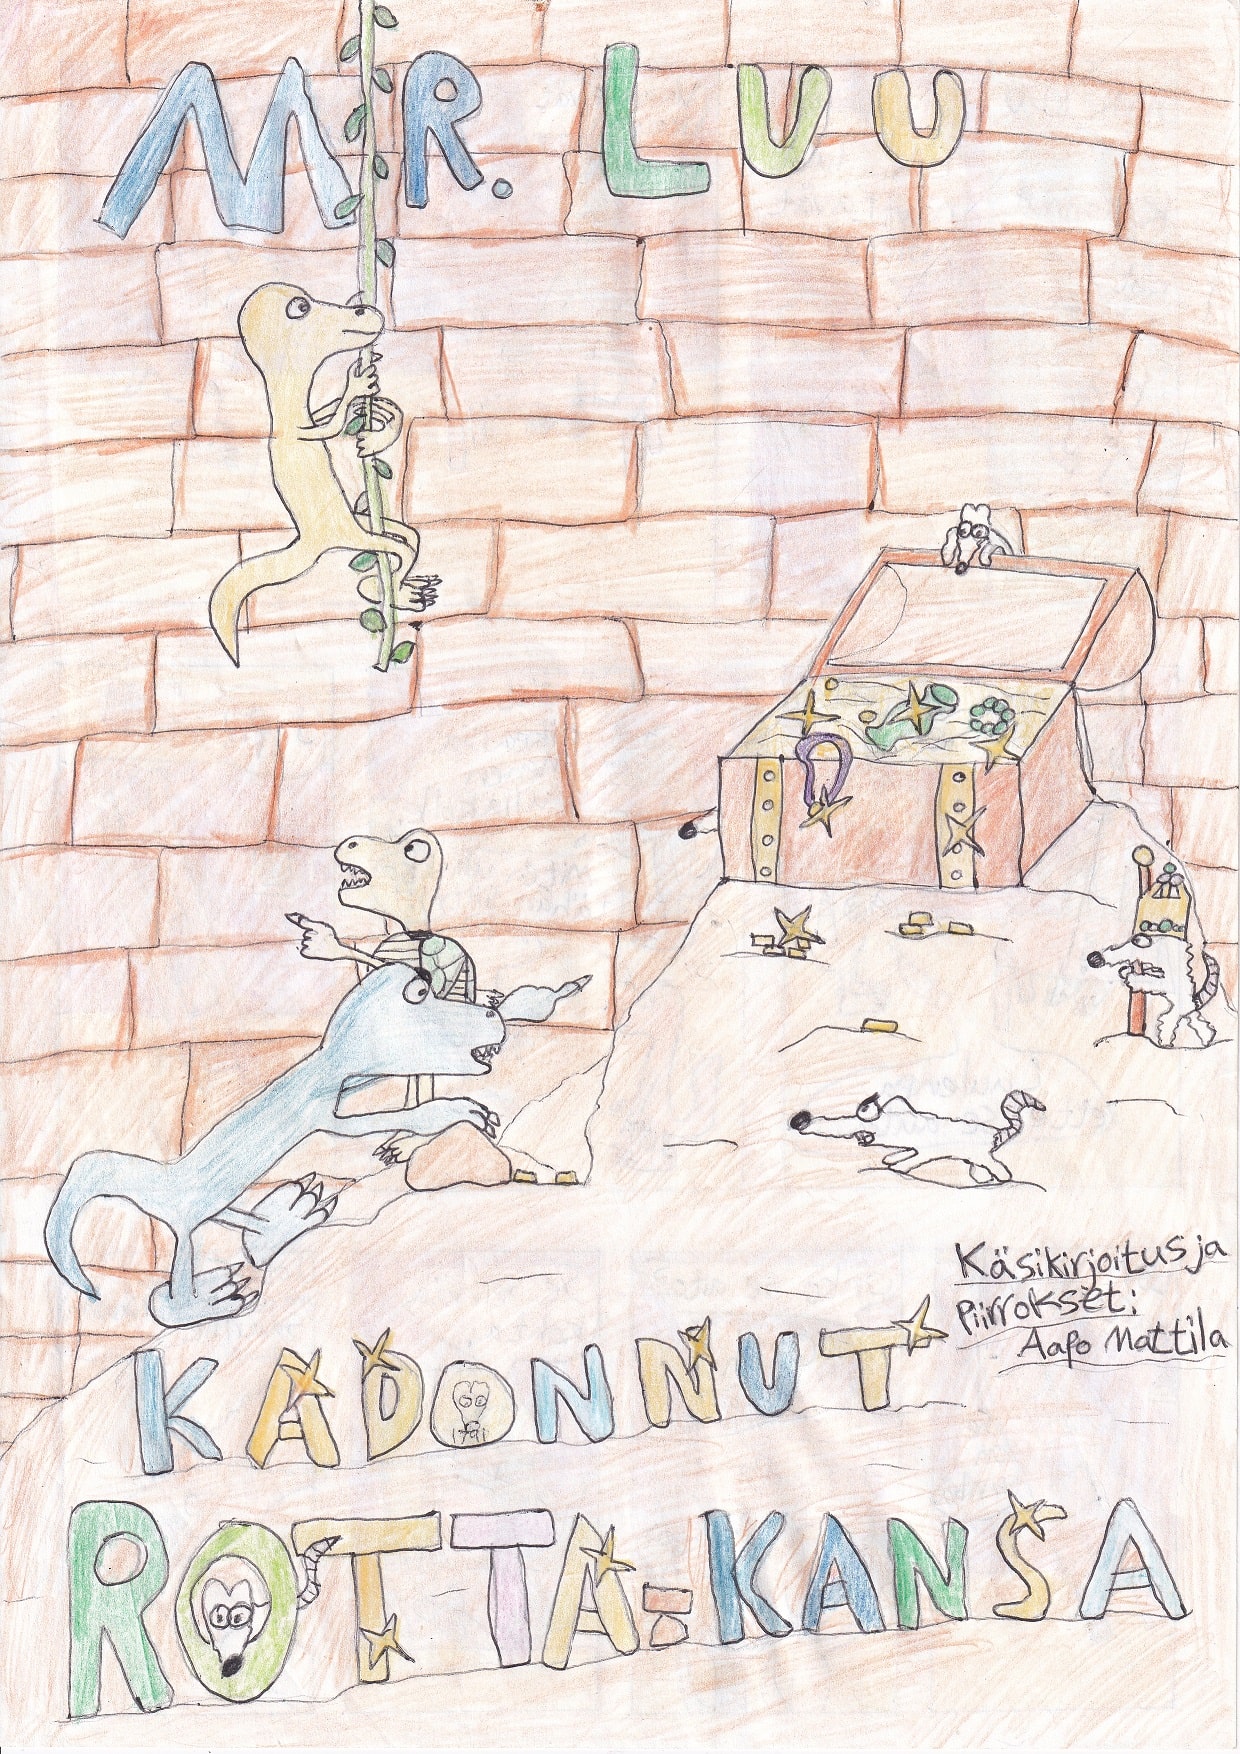 MR. LUU
Käsikirjoitus ja
Piirrokset:
Aapo Mattila
KADONNUT
1791
ROTTA-KANSA